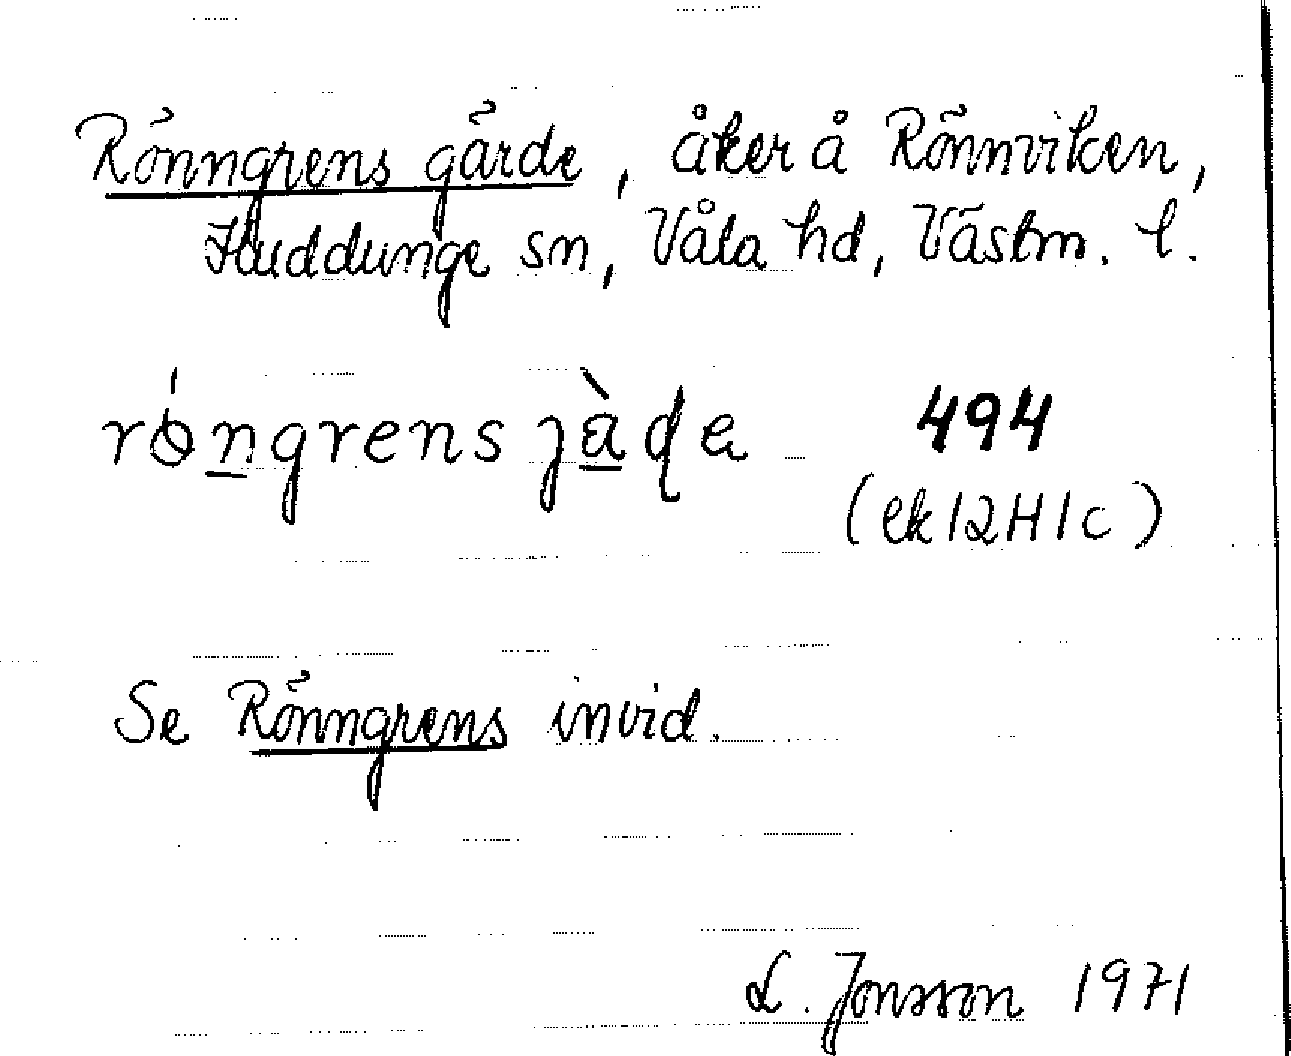 Rönngrens gärde, åker å Rönnviken,
Huddunge sn, Våla hd, Västm. l.
rǿngrens jàɖe 494
(ek 12H1c)
Se Rönngrens invid.
L. Jonsson 1971